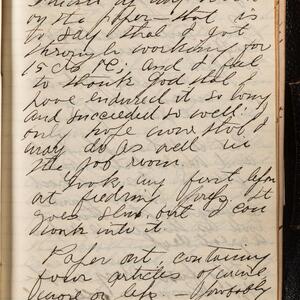 on the paper — that is
to say that I got
through working for
15 cts and I feel
to thank God that I
have endured it so long
and succeeded so well: I
only hope now that I
may do as well in
the job room.
Took my first lesson
at feeding It
goes slow, but I can
work into it.
Paper out, containing
four articles of mine,
more or less. Probably